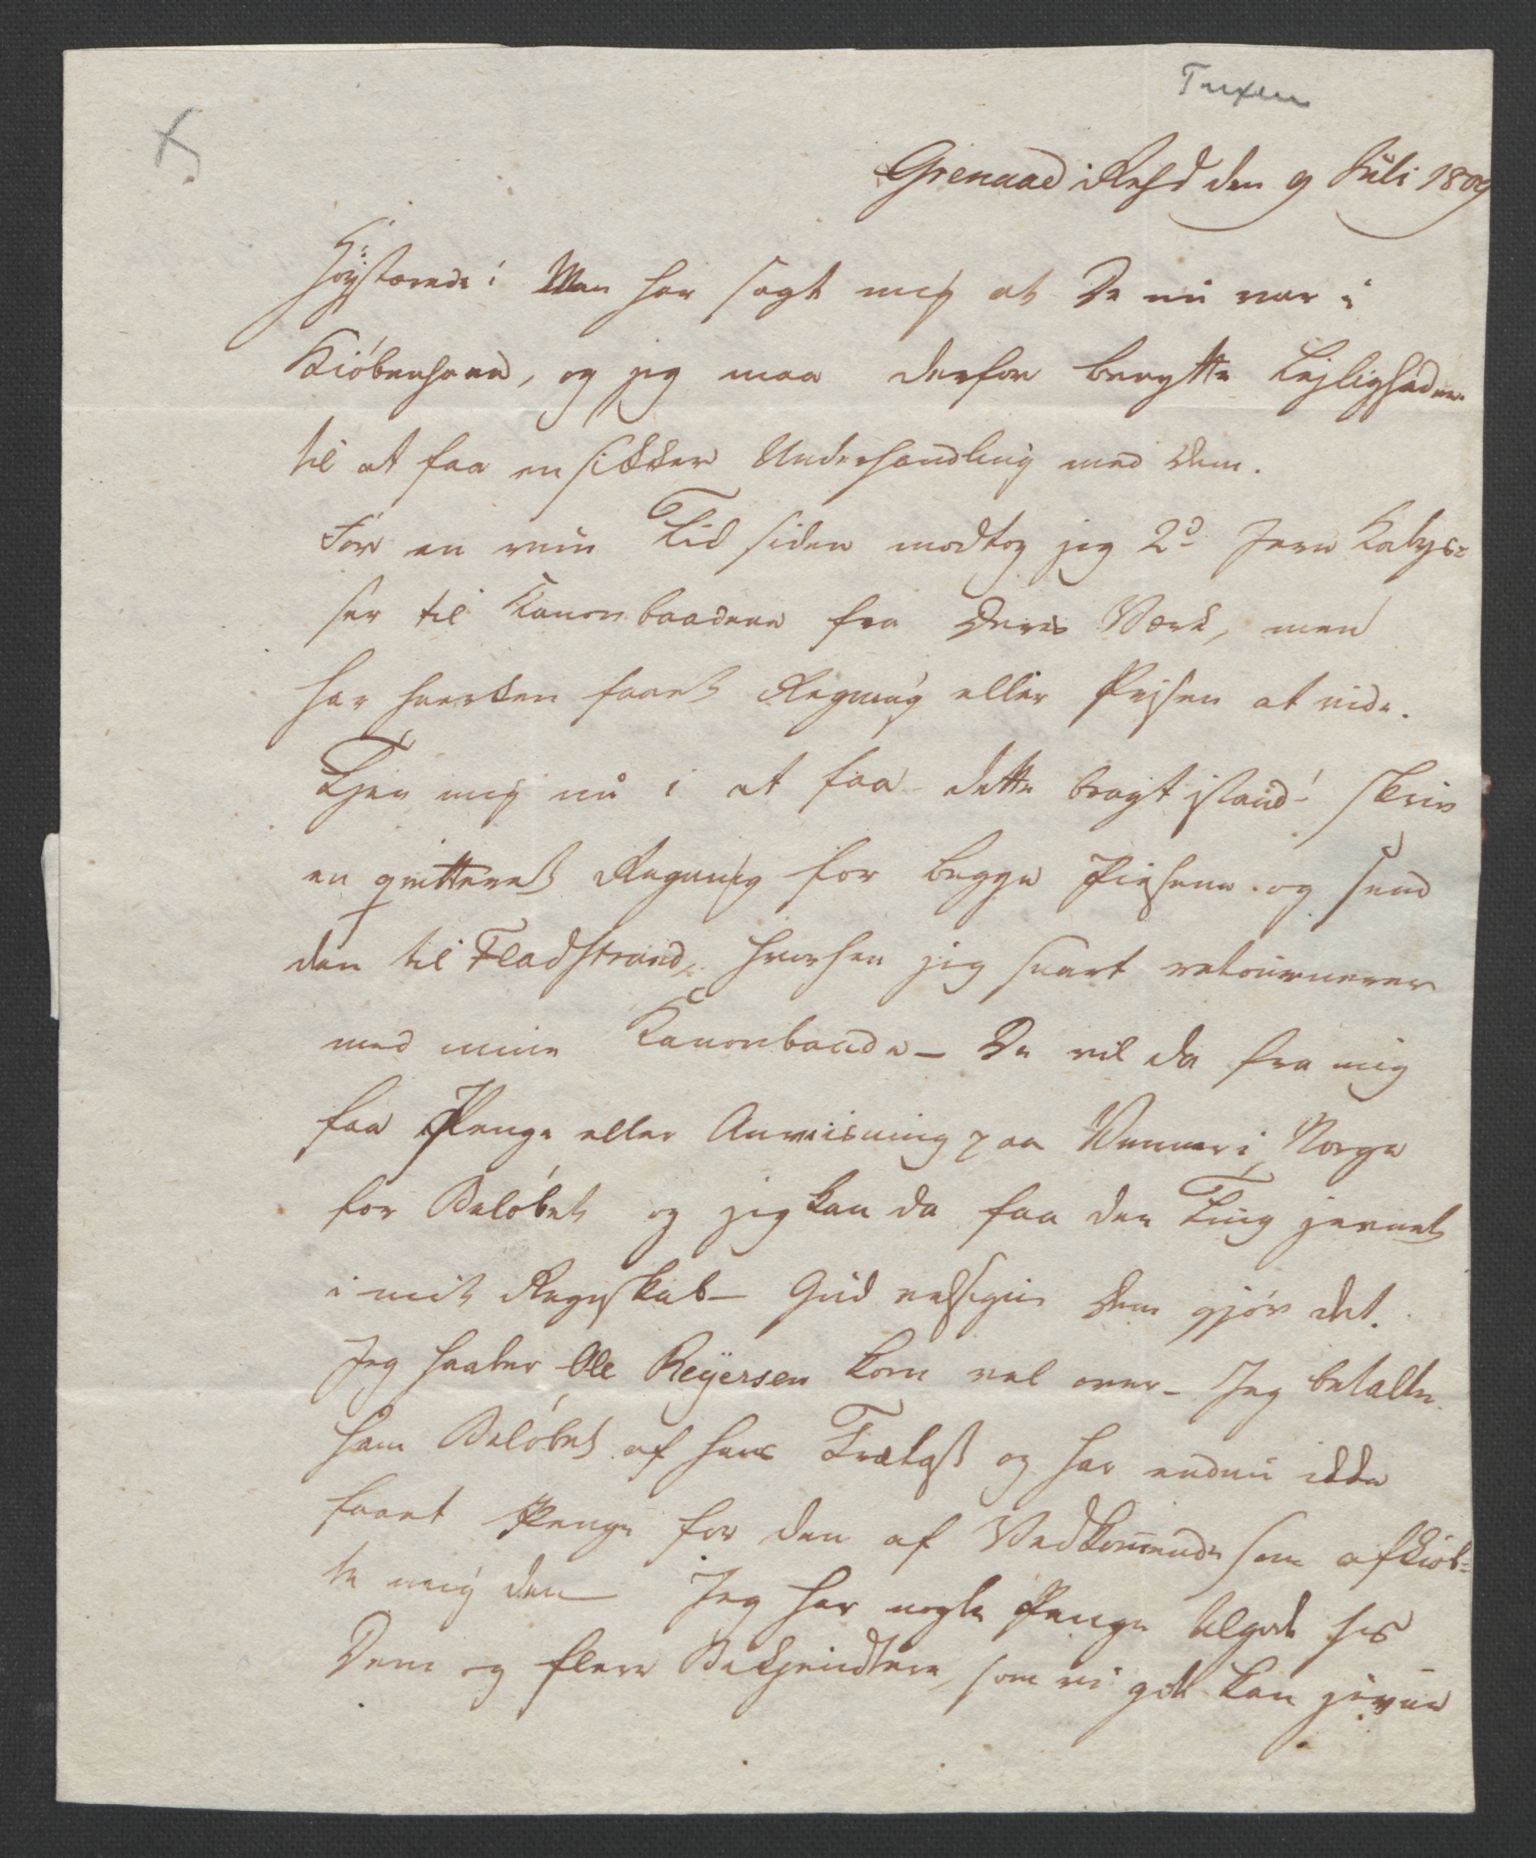 Tuxen
Grenaae i Rehd den 9 Juli 1809
Høystærede! Man har sagt mig at De nu var i
Kiöbenhavn, og jeg maa derfor benytte Lejligheden
til at faa en sikker Underhandling med Dem.
For en rum Tid siden modtog jeg 2de Jern Kabys-
ser til Kanonbaadene fra Deres Værk, men
har hverken faaet Regning eller Prisen at vide.
Tjen mig nu i at faa dette bragt istand! skriv
en qvitteret Regning for begge Piesene og send
den til Fladstrand, hvorhen jeg snart retournerer
med mine Kanonbaade – De vil da fra mig
faa Penge eller Anviisning paa Venner i Norge
for Beløbet og jeg kan da faa den Ting jevnet
i mit Regnskab – Gud velsigne Dem gjör det.
Jeg haaber Ole Reÿersen kom vel over – Jeg betalte
ham Belöbet af hans Trælast og har endnu ikke
faaet Penge for den af Vedkommende som afkiöb-
te mig den – Jeg har nogle Penge tilgode hos
Dem og flere Bekjendtere, som vi godt kan jevne